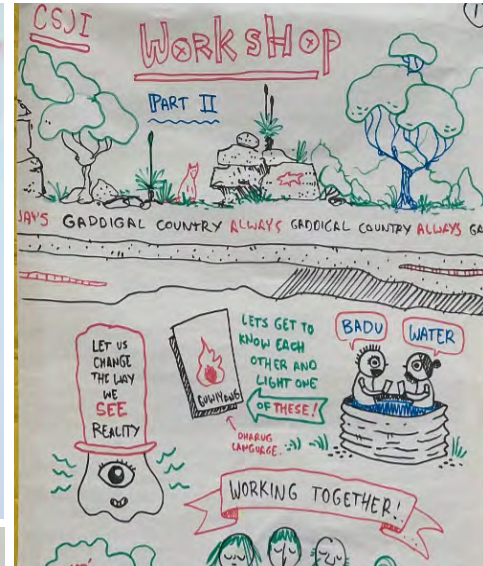 CSJI
WORKSHOP
PART II
GADDIGAL COUNTRY ALWAYS GADDIGAL COUNTRY ALWAYS
LET US
CHANGE
THE WAY
WE
SEE
REALITY
GUWIYANG
DHARUG
LANGUAGE.
LETS GET TO
KNOW EACH
OTHER AND
LIGHT ONE
OF THESE!
BADU
WATER
WORKING TOGETHER!